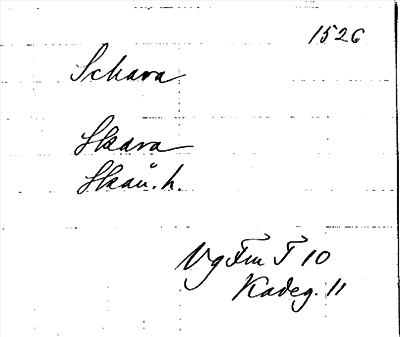 1526
Schara
Skara
Skån. h.
VgFmT 10
Kadeg. 11